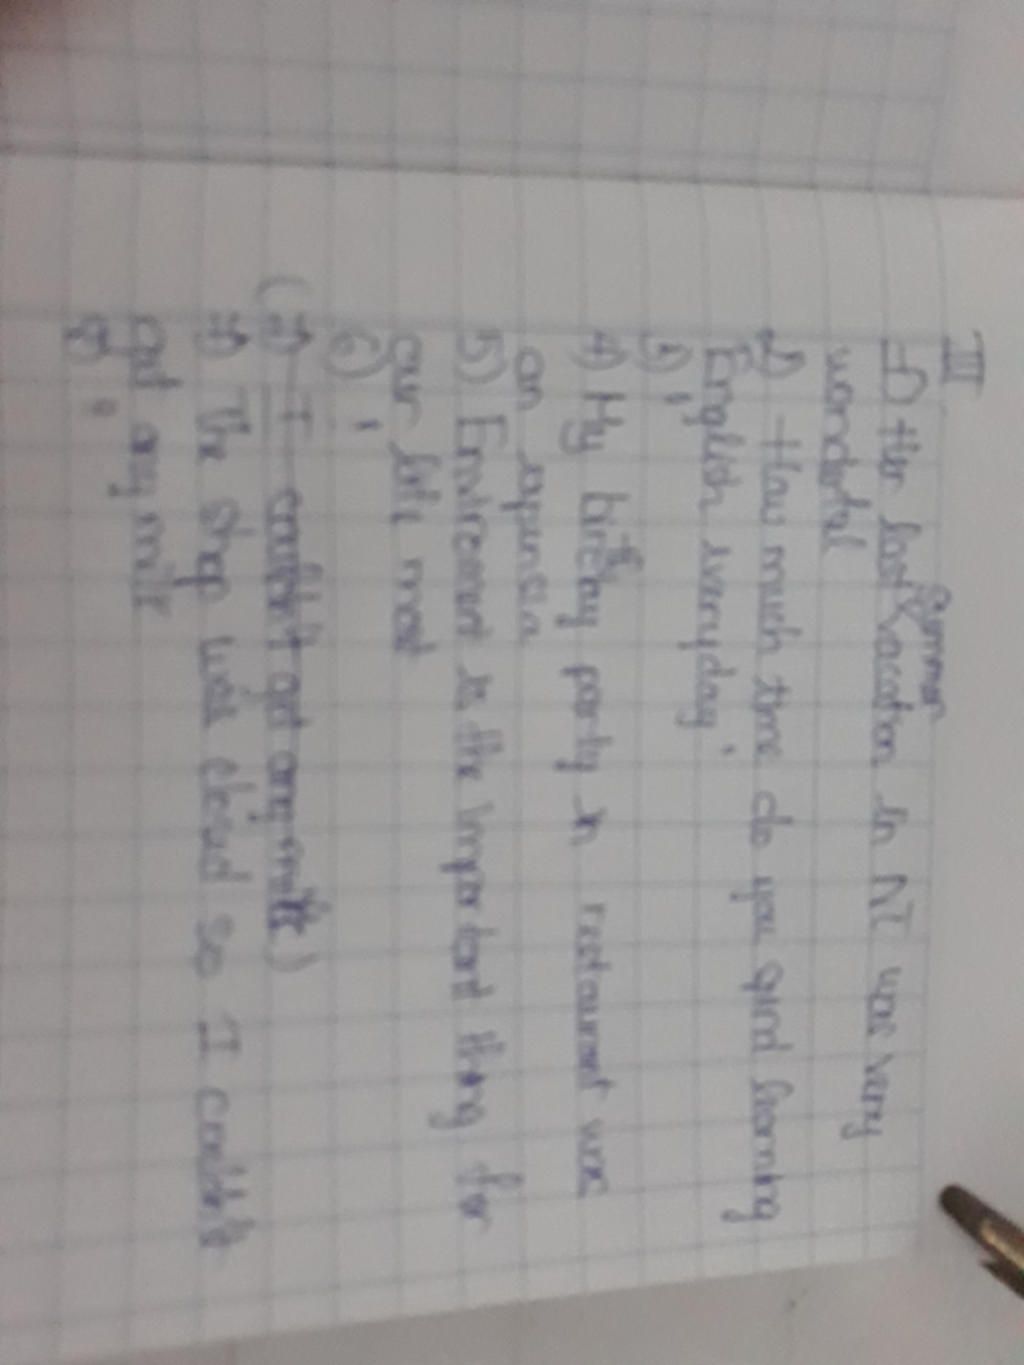 III
1) Her last summer vacation in NT was very
wonderful
2) How much time do you spend learning
English everyday
3) :
4) My birthday party in restaurant was
an
5) is the important thing for
our life most
6) :
(7) I couldn't get any milk)
7) The shop was closed so I couldn't
get any milk
8) :